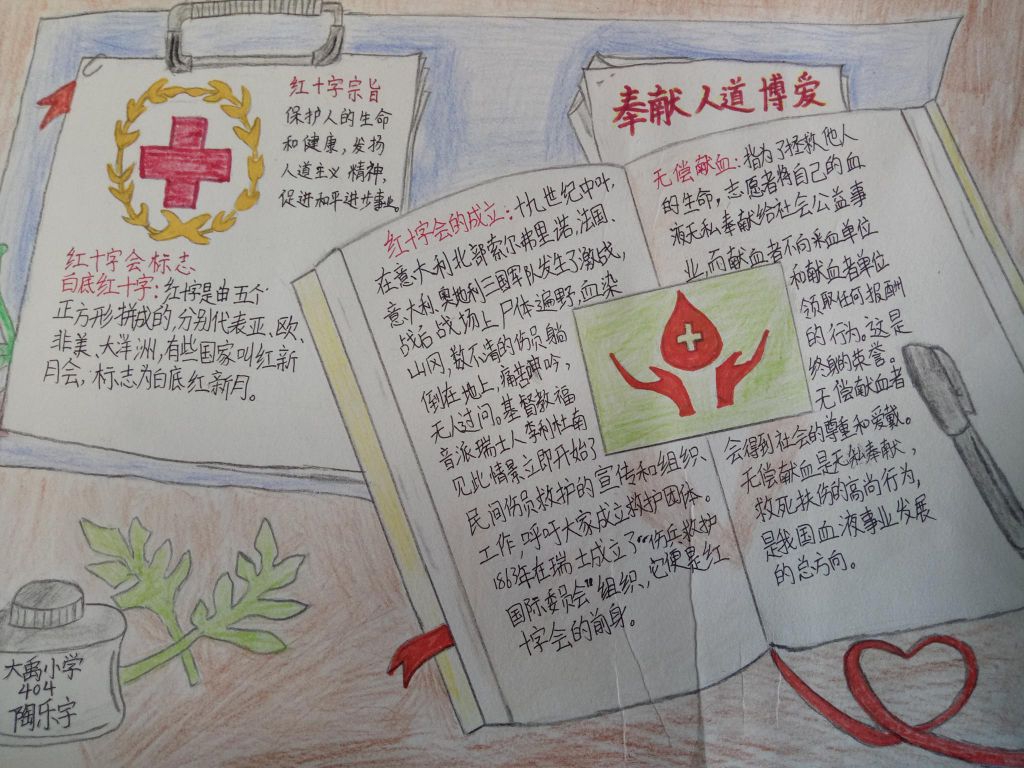 红十字宗旨
保护人的生命
和健康，发扬
人道主义精神，
促进和平进步事业。
红十字会标志
白底红十字：红字是由五个
正方形拼成的，分别代表亚、欧、
非美、大洋洲，有些国家叫红新
月会，标志为白底红新月。
奉献人道博爱
红十字会的成立：十九世纪中叶，
在意大利北部索尔弗里诺，法国、
意大利、奥地利三国军队发生了激战，
战后战场上尸体遍野，血染
山冈，数不清的伤员躺
倒在地上，痛苦呻吟，
无人过问。基督教福
音派瑞士人亨利杜南
见此情景立即开始了
民间伤员救护的宣传和组织、
工作，呼吁大家成立救护团体。
1863年在瑞士成立了“伤兵救护
国际委员会”组织，它便是红
十字会的前身。
无偿献血：指为了拯救他人
的生命，志愿者将自己的血
液无私奉献给社会公益事
业，而献血者不向采血单位
和献血者单位
领取任何报酬
的行为。这是
终身的荣誉。
无偿献血者
会得到社会的尊重和爱戴。
无偿献血是无私奉献，
救死扶伤的高尚行为，
是我国血液事业发展
的总方向。
大禹小学
404
陶乐宇